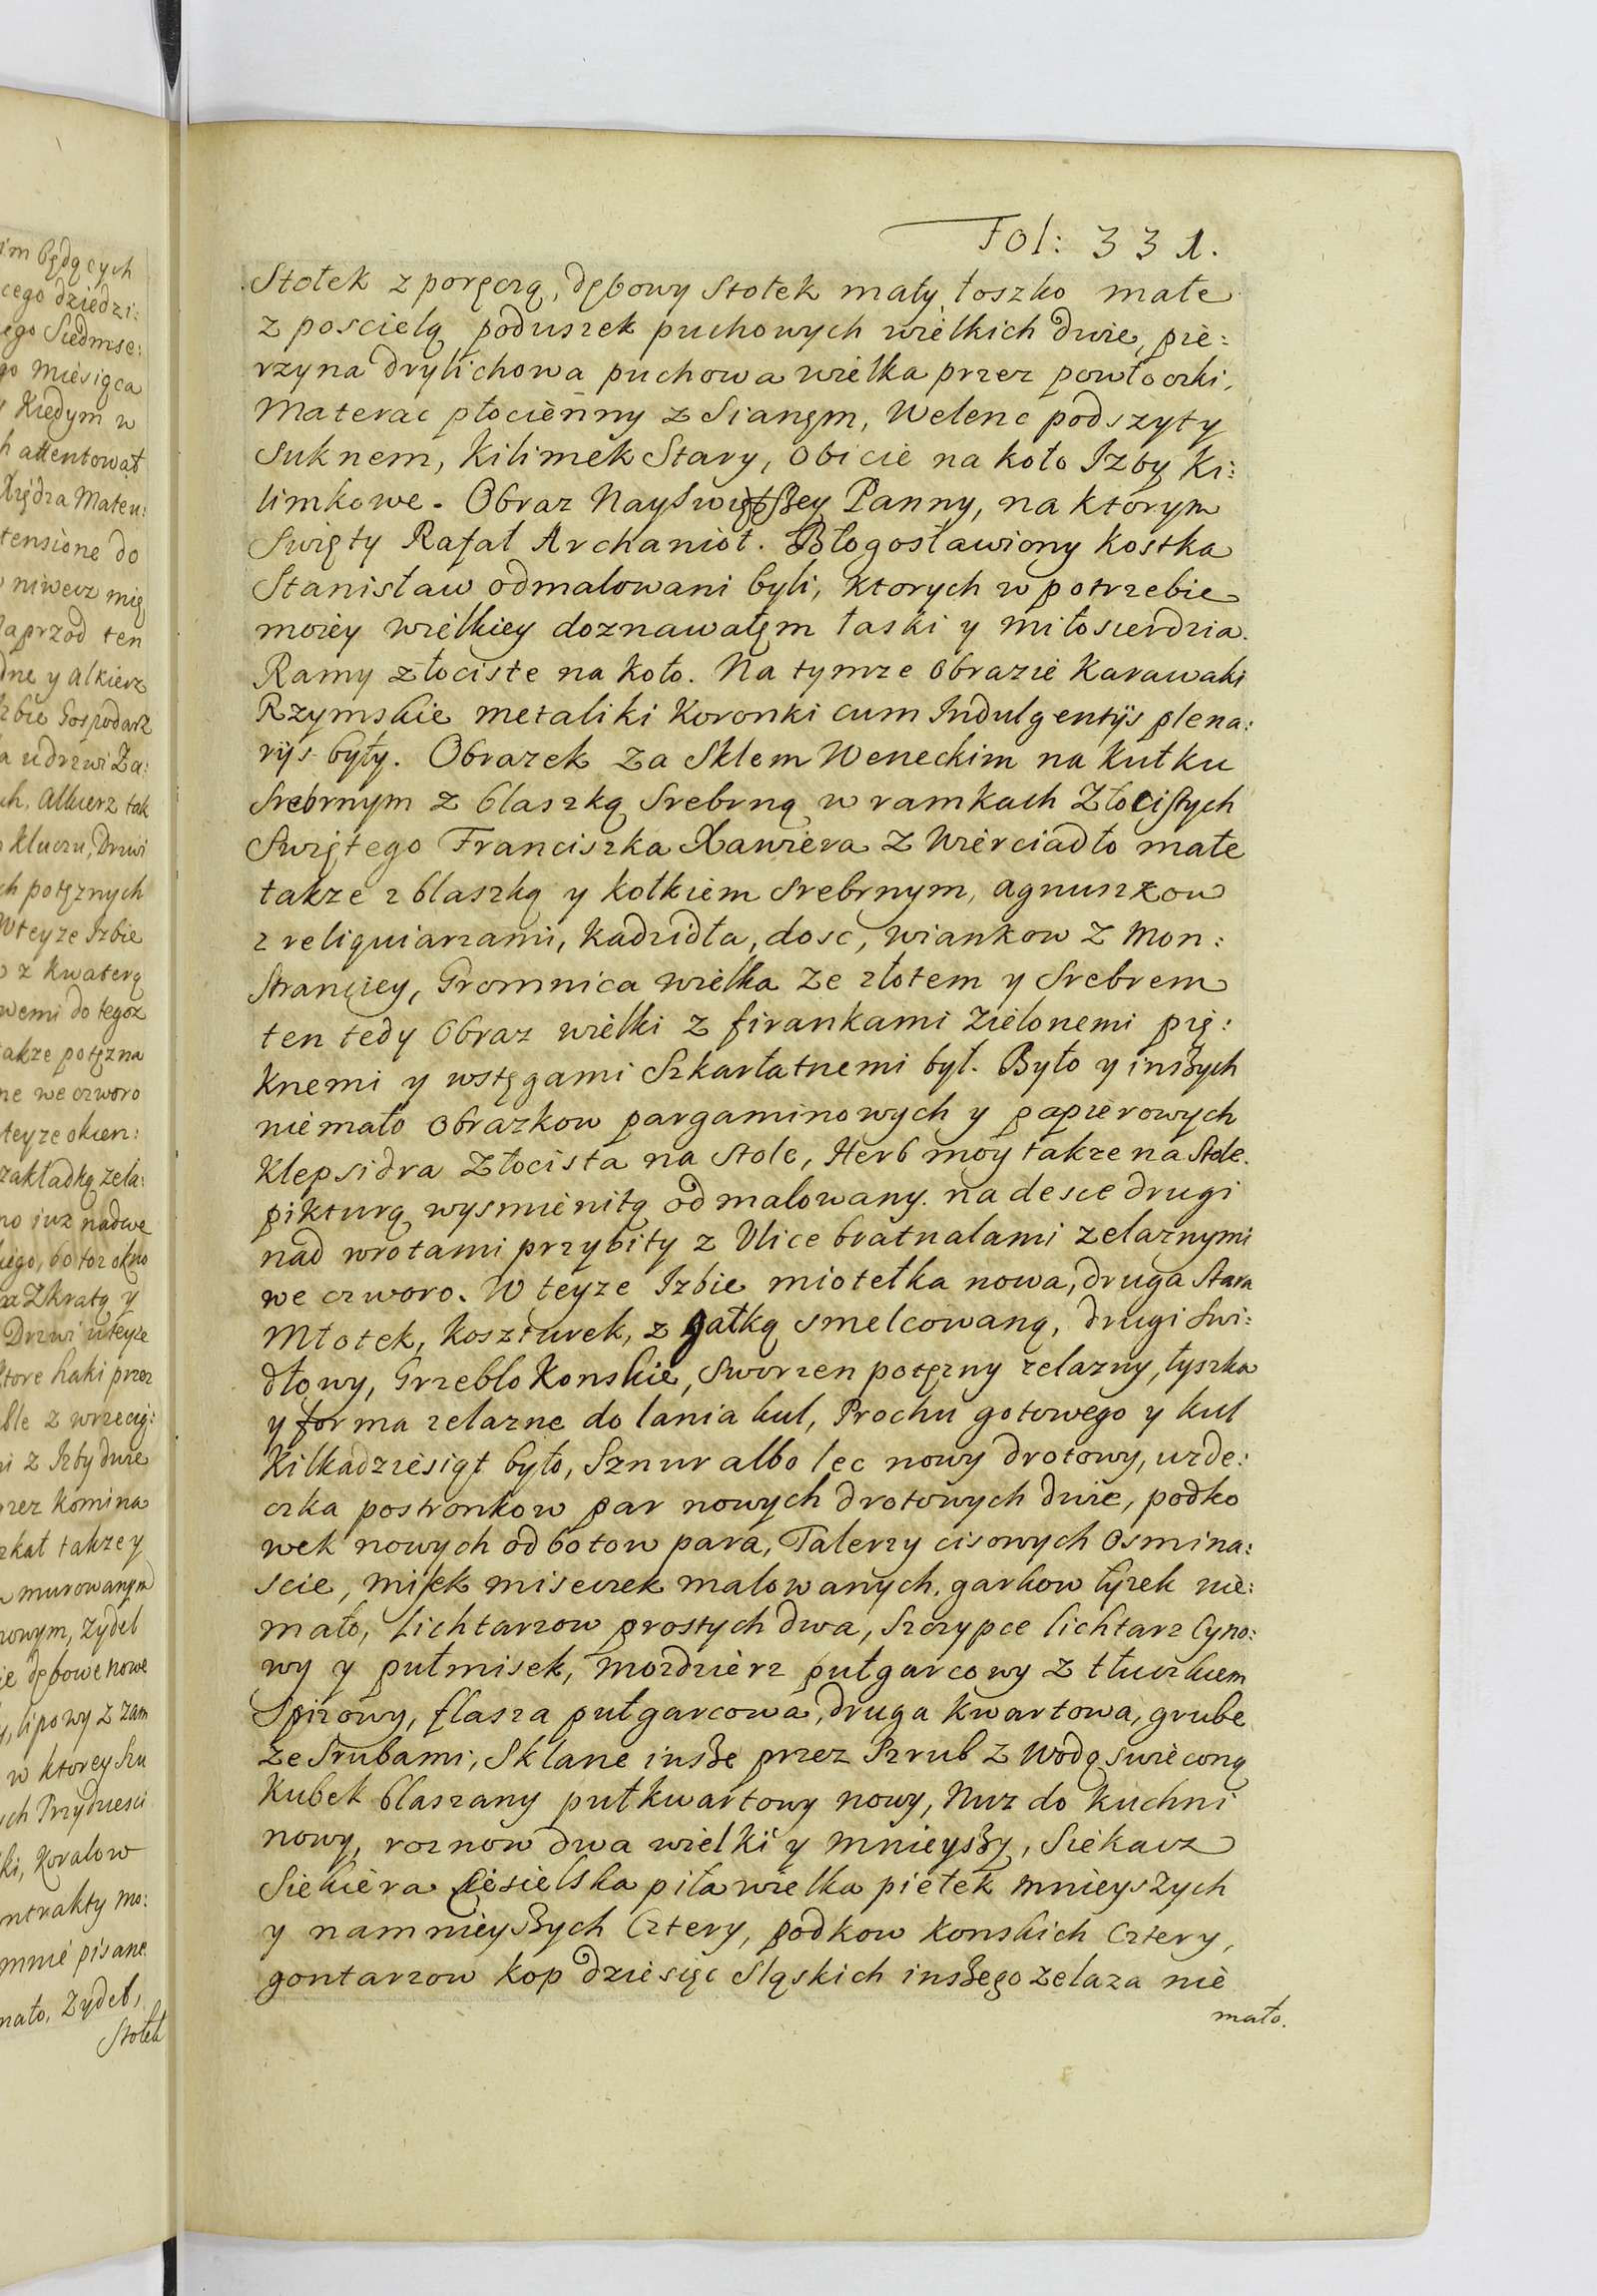 im będących
cego dziedzi:
ego Siedmse:
go Miesiąca
Kiedym w
h attentował
Xiędza Mateu:
tensione do
niwecz mię
Naprzod ten
dne y alkierz
zbie Gospodarz
a udrzwi Za:
ch, Alkierz tak
kluczu, Drzwi
ch potęznych
Wteyze Izbie
z kwaterą
wemi do tegoz
takze potęzna
ne we czworo
teyze okien:
zakładką zela:
no iuz nadwe
iego, bo toz okno
Zkratą y
Drzwi uteyze
ktore haki przez
ble z wrzecią:
i z Izby dwie
rzez komina
zkał takze y
murowanym
nowym, Zydel
ie dębowe nowe
y, lipowy z zam
w ktorey Szu
ych Przydziesci
ki, Koralow
ntrakty mo:
mnie pisane
mało, Zydel,
Stołek
Fol: 331.
Stołek z poręczą, dębowy Stołek mały, łoszko małe
z poscielą poduszek puchowych wielkich dwie, pie:
rzyna drylichowa puchowa wielka przez powłoczki,
Materac płocienny z Sianęm, Welenc podszyty
Suknem, Kilimek Stary, Obicie na koło Izby Ki:
limkowe. Obraz Nayswiętszey Panny, na ktorym
Swięty Rafał Archanioł. Błogosławiony Kostka
Stanisław odmalowani byli, ktorych w potrzebie
moiey wielkiey doznawałęm łaski y miłosierdzia.
Ramy złociste na koło. Na tymze obrazie Karawaki
Rzymskie metaliki Koronki cum Indulgentijs plena:
rijs były. Obrazek za Sklem Weneckim na kułku
Srebrnym z blaszką Srebrną w ramkach Złocistych
Swiętego Franciszka Xawiera Z Wierciadło małe
takze z blaszką y kołkiem Srebrnym, agnuszkow
z reliquiarzami, kadzidła, dosc, wiankow Z Mon:
Stranciey, Gromnica wielka ze złotem y Srebrem
ten tedy Obraz wielki z firankami Zielonemi pię:
knemi y wstęgami Szkarłatnemi był. Było y inszych
niemało obrazkow pargaminowych y papierowych
Klepsidra Złocista na stole, Herb moy takze na Stole.
pikturą wysmienitą odmalowany. na desce drugi
nad wrotami przybity z Ulice bratnalami zelaznymi
we czworo. W teyze Izbie miotełka nowa, druga Stara
Młotek, koszturek, z gałką smelcowaną, drugi Swi:
dłowy, Grzebło Konskie, Sworzen potęzny zelazny, łyszka
y forma zelazne do lania kul, Prochu gotowego y kul
Kilkadziesiąt było, Sznur albo lec nowy drotowy, uzde:
czka postronkow par nowych drotowych dwie, podko
wek nowych od botow para, Talerzy cisowych Osmina:
scie, misek miseczek malowanych, garkow łyzek nie:
mało, Lichtarzow prostych dwa, Szczypce lichtarz Cyno:
wy y pułmisek, mozdzierz pułgarcowy z tłuczkiem
Spizowy, flasza pułgarcowa, druga kwartowa, grube
ze Srubami, Sklane insze przez Szrub z Wodą swieconą
Kubek blaszany pułkwartowy nowy, Nuz do kuchni
nowy, roznow dwa wielki y mnieyszy, Siekacz
Siekiera Ciesielska piła wielka piełek mnieyszych
y namnieyszych Cztery, podkow konskich Cztery,
gontarzow kop dziesięc Sląskich inszego zelaza nie
mało.